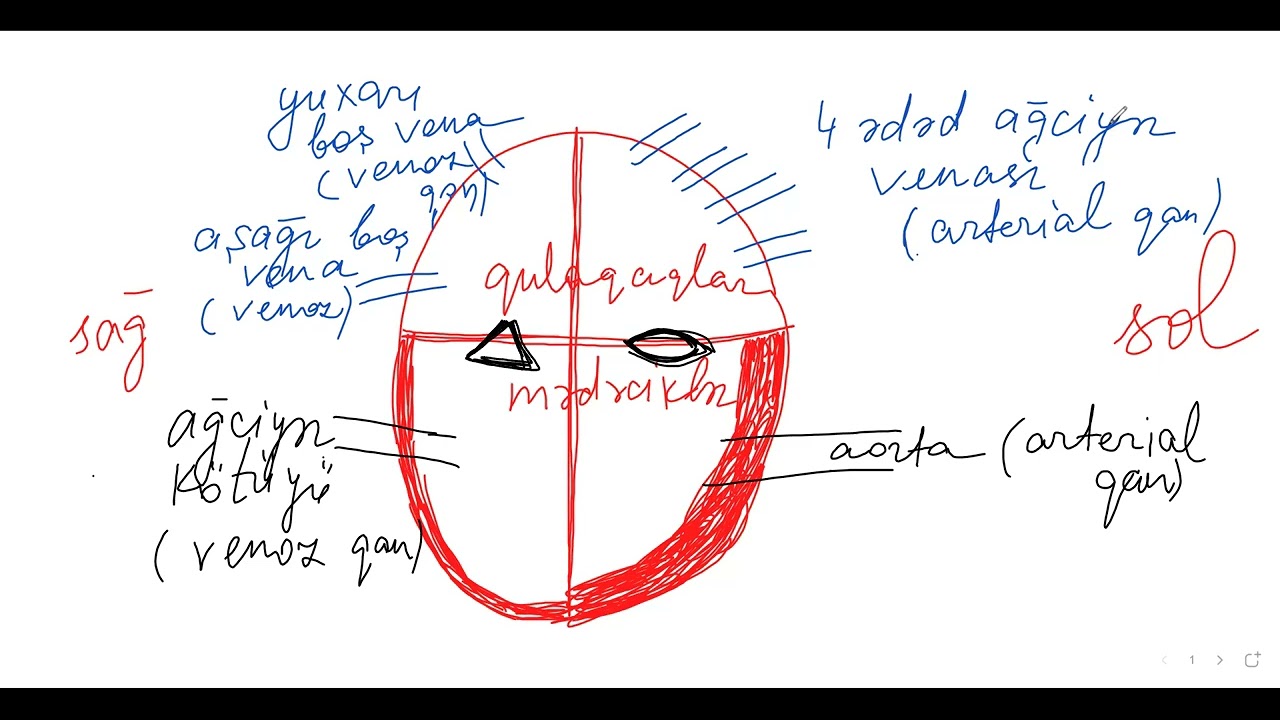 yuxarı
boş vena
(venoz
qan)
aşağı boş
vena
(venoz)
4 ədəd ağciyər
venası
(arterial qan)
sağ
sol
qulaqcıqlar
mədəciklər
ağciyər
kötüyü
(venoz qan)
aorta (arterial
qan)
1